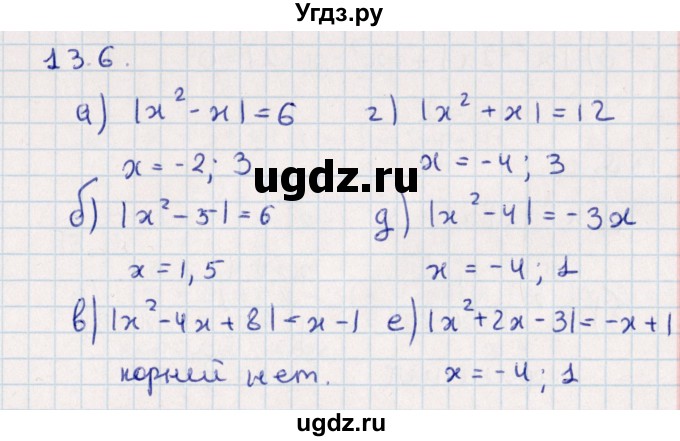 Угдз.ру
13.6.
а) |x² - x| = 6
г) |x² + x| = 12
x = -2; 3
x = -4; 3
ugdz.ru
б) |x² - 5| = 6
д) |x² - 4| = -3x
x = 1, 5
x = -4; 1
в) |x² - 4x + 8| = x - 1
е) |x² + 2x - 3| = -x + 1
корней нет.
x = -4; 1
ugdz.ru